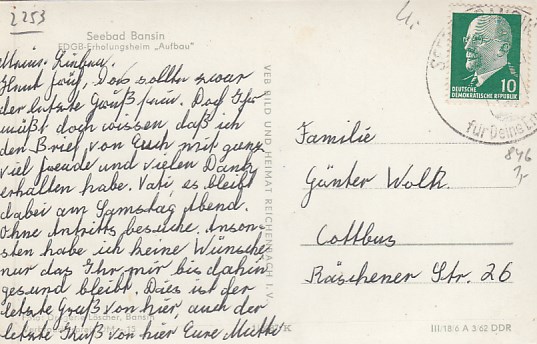 2253
Seebad Bansin
FDGB-Erholungsheim „Aufbau"
Meine Lieben.
Heut soll, das sollte zwar
der letzte Gruß sein. Doch Ihr
müßt doch wissen daß ich
den Brief von Euch mit ganz
viel Freude und vielen Dank
erhalten habe. Vati, es bleibt
dabei am Samstag Abend.
Ohne Antritts besuche. Anson-
sten habe ich keine Wünsche
nur das Ihr mir bis dahin
gesund bleibt. Dies ist der
letzte Gruß von hier, auch der
letzte Kuß von hier Eure Mutti
Löscher, Bansin
VEB BILD UND HEIMAT REICHENBACH I. V.
10
DEUTSCHE
DEMOKRATISCHE REPUBLIK
für Deine
846
Familie
Günter Wolk.
Cottbus
Räschener Str. 26
III/18/6 A 3/62 DDR